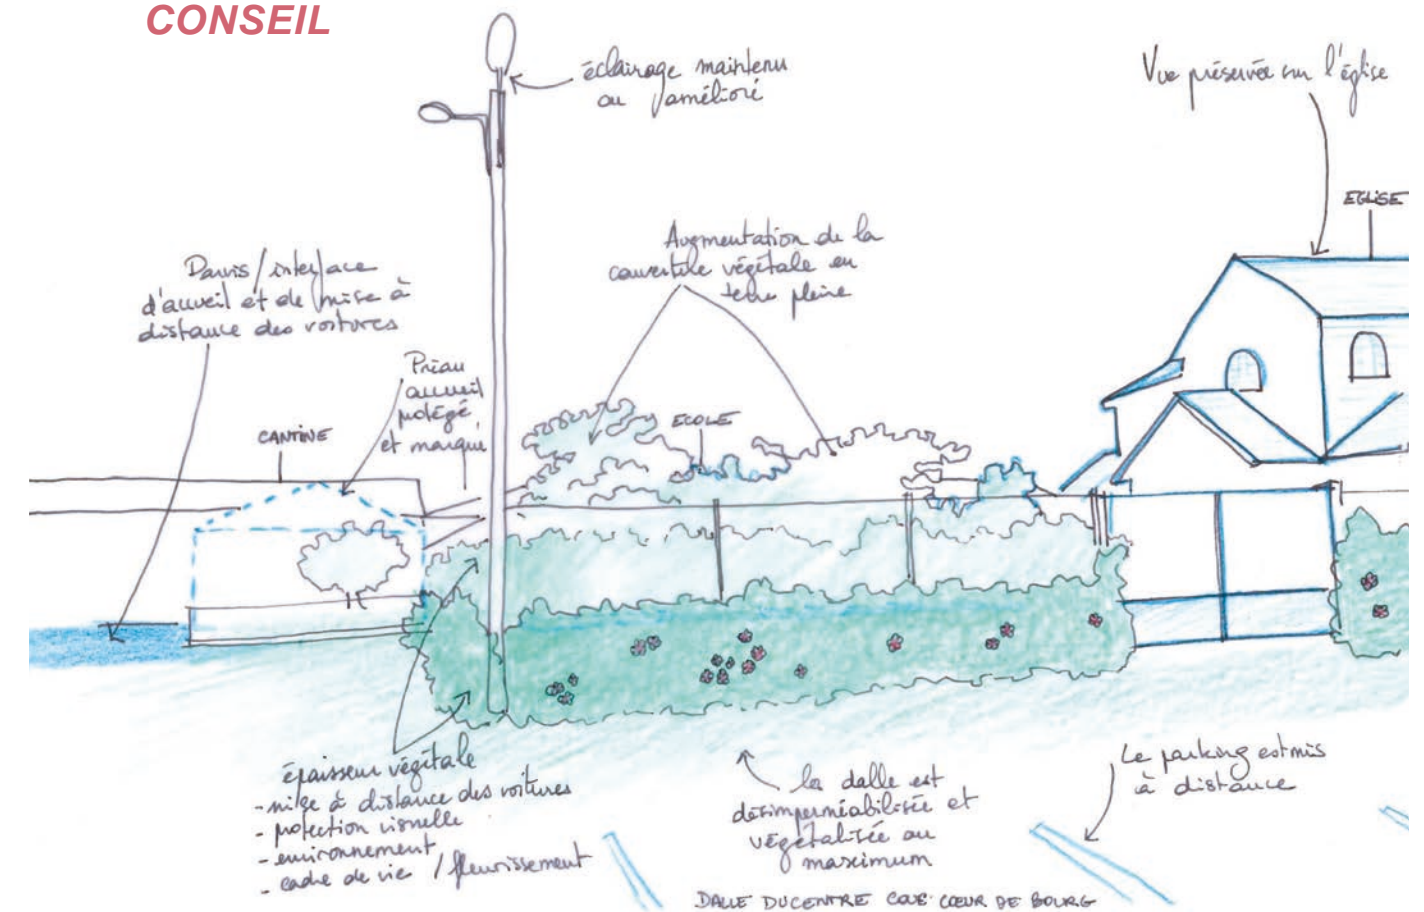 CONSEIL
éclairage maintenu
ou amélioré
Vue préservée sur l'église
EGLISE
Augmentation de la
couvertule végétale en
terre pleine
Parvis/interface
d'accueil et de mise à
distance des voitures
Préau
accueil
protégé
et marqué
CANTINE
ECOLE
épaisseur végétale
- mise à distance des voitures
- protection visuelle
- environnement
- cadre de vie / fleurissement
la dalle est
désimperméabilisée et
végétalisée au
maximum
Le parking est mis
à distance
DALLE DU CENTRE COEUR DE BOURG